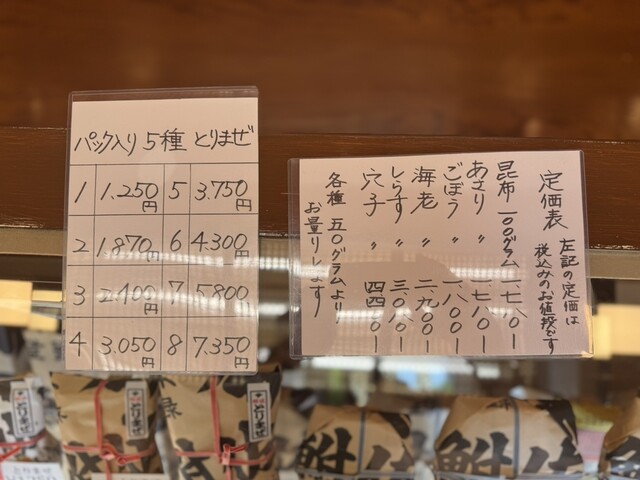 パック入り 5種 とりまぜ
1 1.250円 5 3.750円
2 1.870円 6 4.300円
3 2.400円 7 5.800円
4 3.050円 8 7.350円
定価表
左記の定価は
税込みのお値段です
昆布 一〇〇グラム 一、七八〇ー
あさり 〃 一、七八〇ー
ごぼう 〃 一、八〇〇ー
海老 〃 二、九〇〇ー
しらす 〃 三、〇八〇ー
穴子 〃 四、四〇〇ー
各種 五〇グラムより
お量りします
とりまぜ
とりまぜ